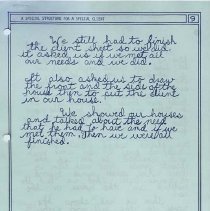 A SPECIAL STRUCTURE FOR A SPECIAL CLIENT 9
We still had to finish
the client sheet so we did
it asked us if we met all
our needs and we did.
It also asked us to draw
the front and the side of the
house then to put the client
in our house.
We showed our houses
and talked about the need
that he had to have and if we
met them. Then we were all
finished.